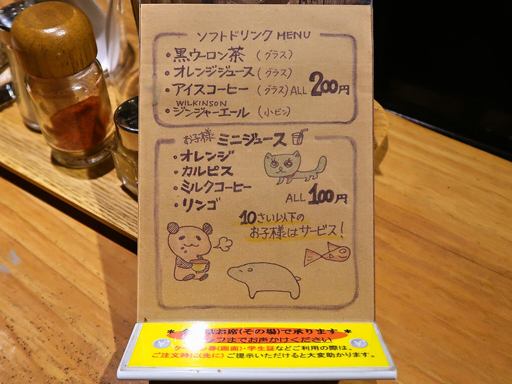 ソフトドリンク MENU
・黒ウーロン茶 (グラス)
・オレンジジュース (グラス)
・アイスコーヒー (グラス) ALL 200円
WILKINSON
・ジンジャーエール (小ビン)
お子様 ミニジュース
・オレンジ
・カルピス
・ミルクコーヒー
・リンゴ
ALL 100円
10さい以下の
お子様はサービス!
お席(その場)で承ります。*
までお声かけください
(画面)・学生証などご利用の際は、
ご注文時(以先に)ご提示いただけると大変助かります。